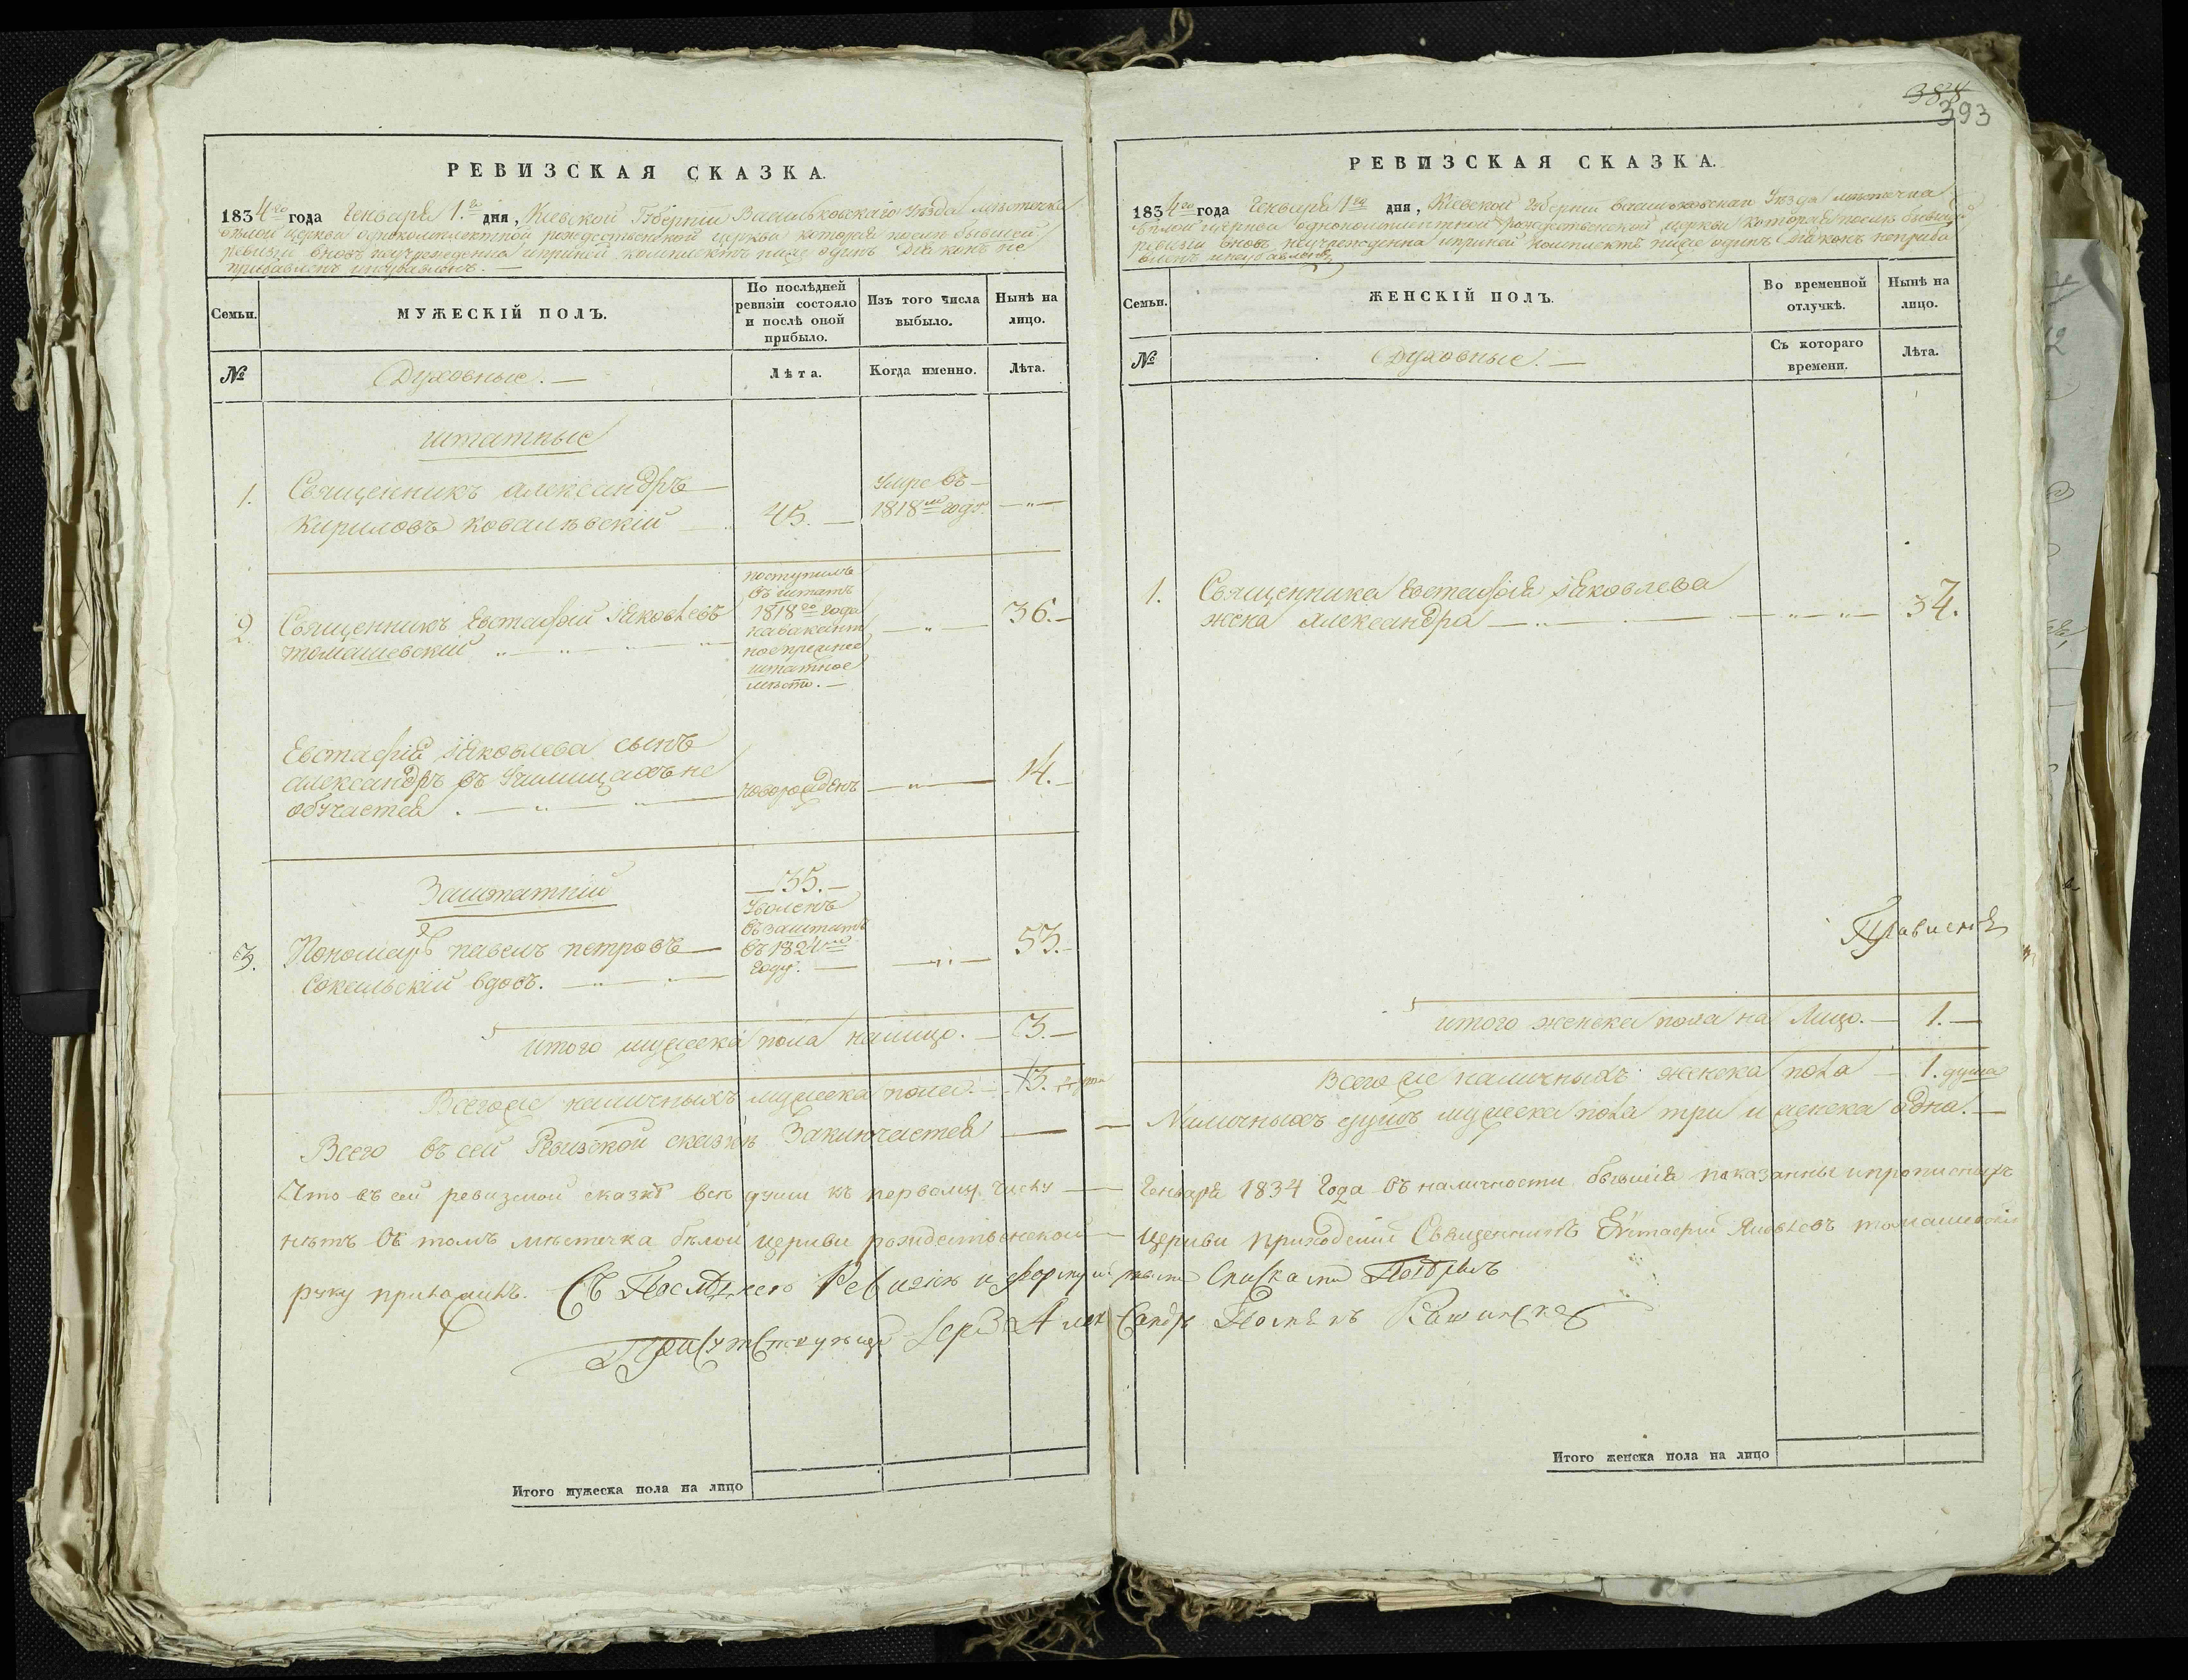 388
393
РЕВИЗСКАЯ СКАЗКА.
1834го года Генваря 1.го дня, Кіевской Губерніи Васильковскаго Уѣзда мѣстечка
бѣлой церкви однокомплектной рождественской церкви которая послѣ бывшей
ревизіи вновь неучреждена ипричей комплектъ ниже одинъ Діаконъ не
прибавленъ инеубавленъ. —
Семьи.
МУЖЕСКІЙ ПОЛЪ.
По послѣдней
ревизіи состояло
и послѣ оной
прибыло.
Изъ того числа
выбыло.
Нынѣ на
лицо.
№
Духовные. —
Лѣта.
Когда именно.
Лѣта.
штатные
1. Священникъ александръ
Кириловъ ковалѣвскій
45. —
Умре въ
1818м годѣ.
2. Священникъ Евстафій Іяковлевъ
томашевскій
поступилъ
въ штатъ
1818го года
навакант
ноепрежнее
штатное
мѣсто. —
36. —
Евстафія Іяковлева сынъ
александръ въ Училищахъ не
обучается
новорожденъ
14. —
Заштатній
3. Пономарь павелъ петровъ
Сокольскій вдовъ.
— 35. —
Уволенъ
въ заштатъ
въ 1824мъ
году.
53. —
итого мужеска пола налицо. — 3. —
Всегоже наличныхъ мужеска пола. — 3.
Всего въ сей Ревизской сказкѣ Заключается —
Что въ сей ревизской сказкѣ всѣ души къ первому числу —
нѣтъ въ томъ мѣстечка бѣлой церкви рождественской —
руку приложилъ. Съ Послѣднею Ревизіею и формулярными Списками Повѣрялъ
Присутствующій Іерей Александръ
Итого мужеска пола на лицо
РЕВИЗСКАЯ СКАЗКА.
1834го года Генваря 1го дня, Кіевской Губерніи васильковскаго Уѣзда мѣстечка
бѣлой церкви однокомплектной рождественской церкви которая послѣ бывшей
ревизіи вновь неучреждена ипричей комплектъ ниже одинъ Діаконъ неприба
вленъ инеубавленъ
Семьи.
ЖЕНСКІЙ ПОЛЪ.
Во временной
отлучкѣ.
Нынѣ на
лицо.
№
Духовные. —
Съ котораго
времени.
Лѣта.
1. Священника Евстафія Іяковлева
жена Александра
34.
итого женска пола на Лицо. — 1. —
Всего же наличныхъ женска пола — 1. душа
Наличныхъ душъ мужеска пола три и женска одна. —
Генваря 1834 Года въ наличности бывшія показаны ипрописныхъ
церкви приходскій Священникъ Евстафій Яковлевъ томашевскій
Итого женска пола на лицо